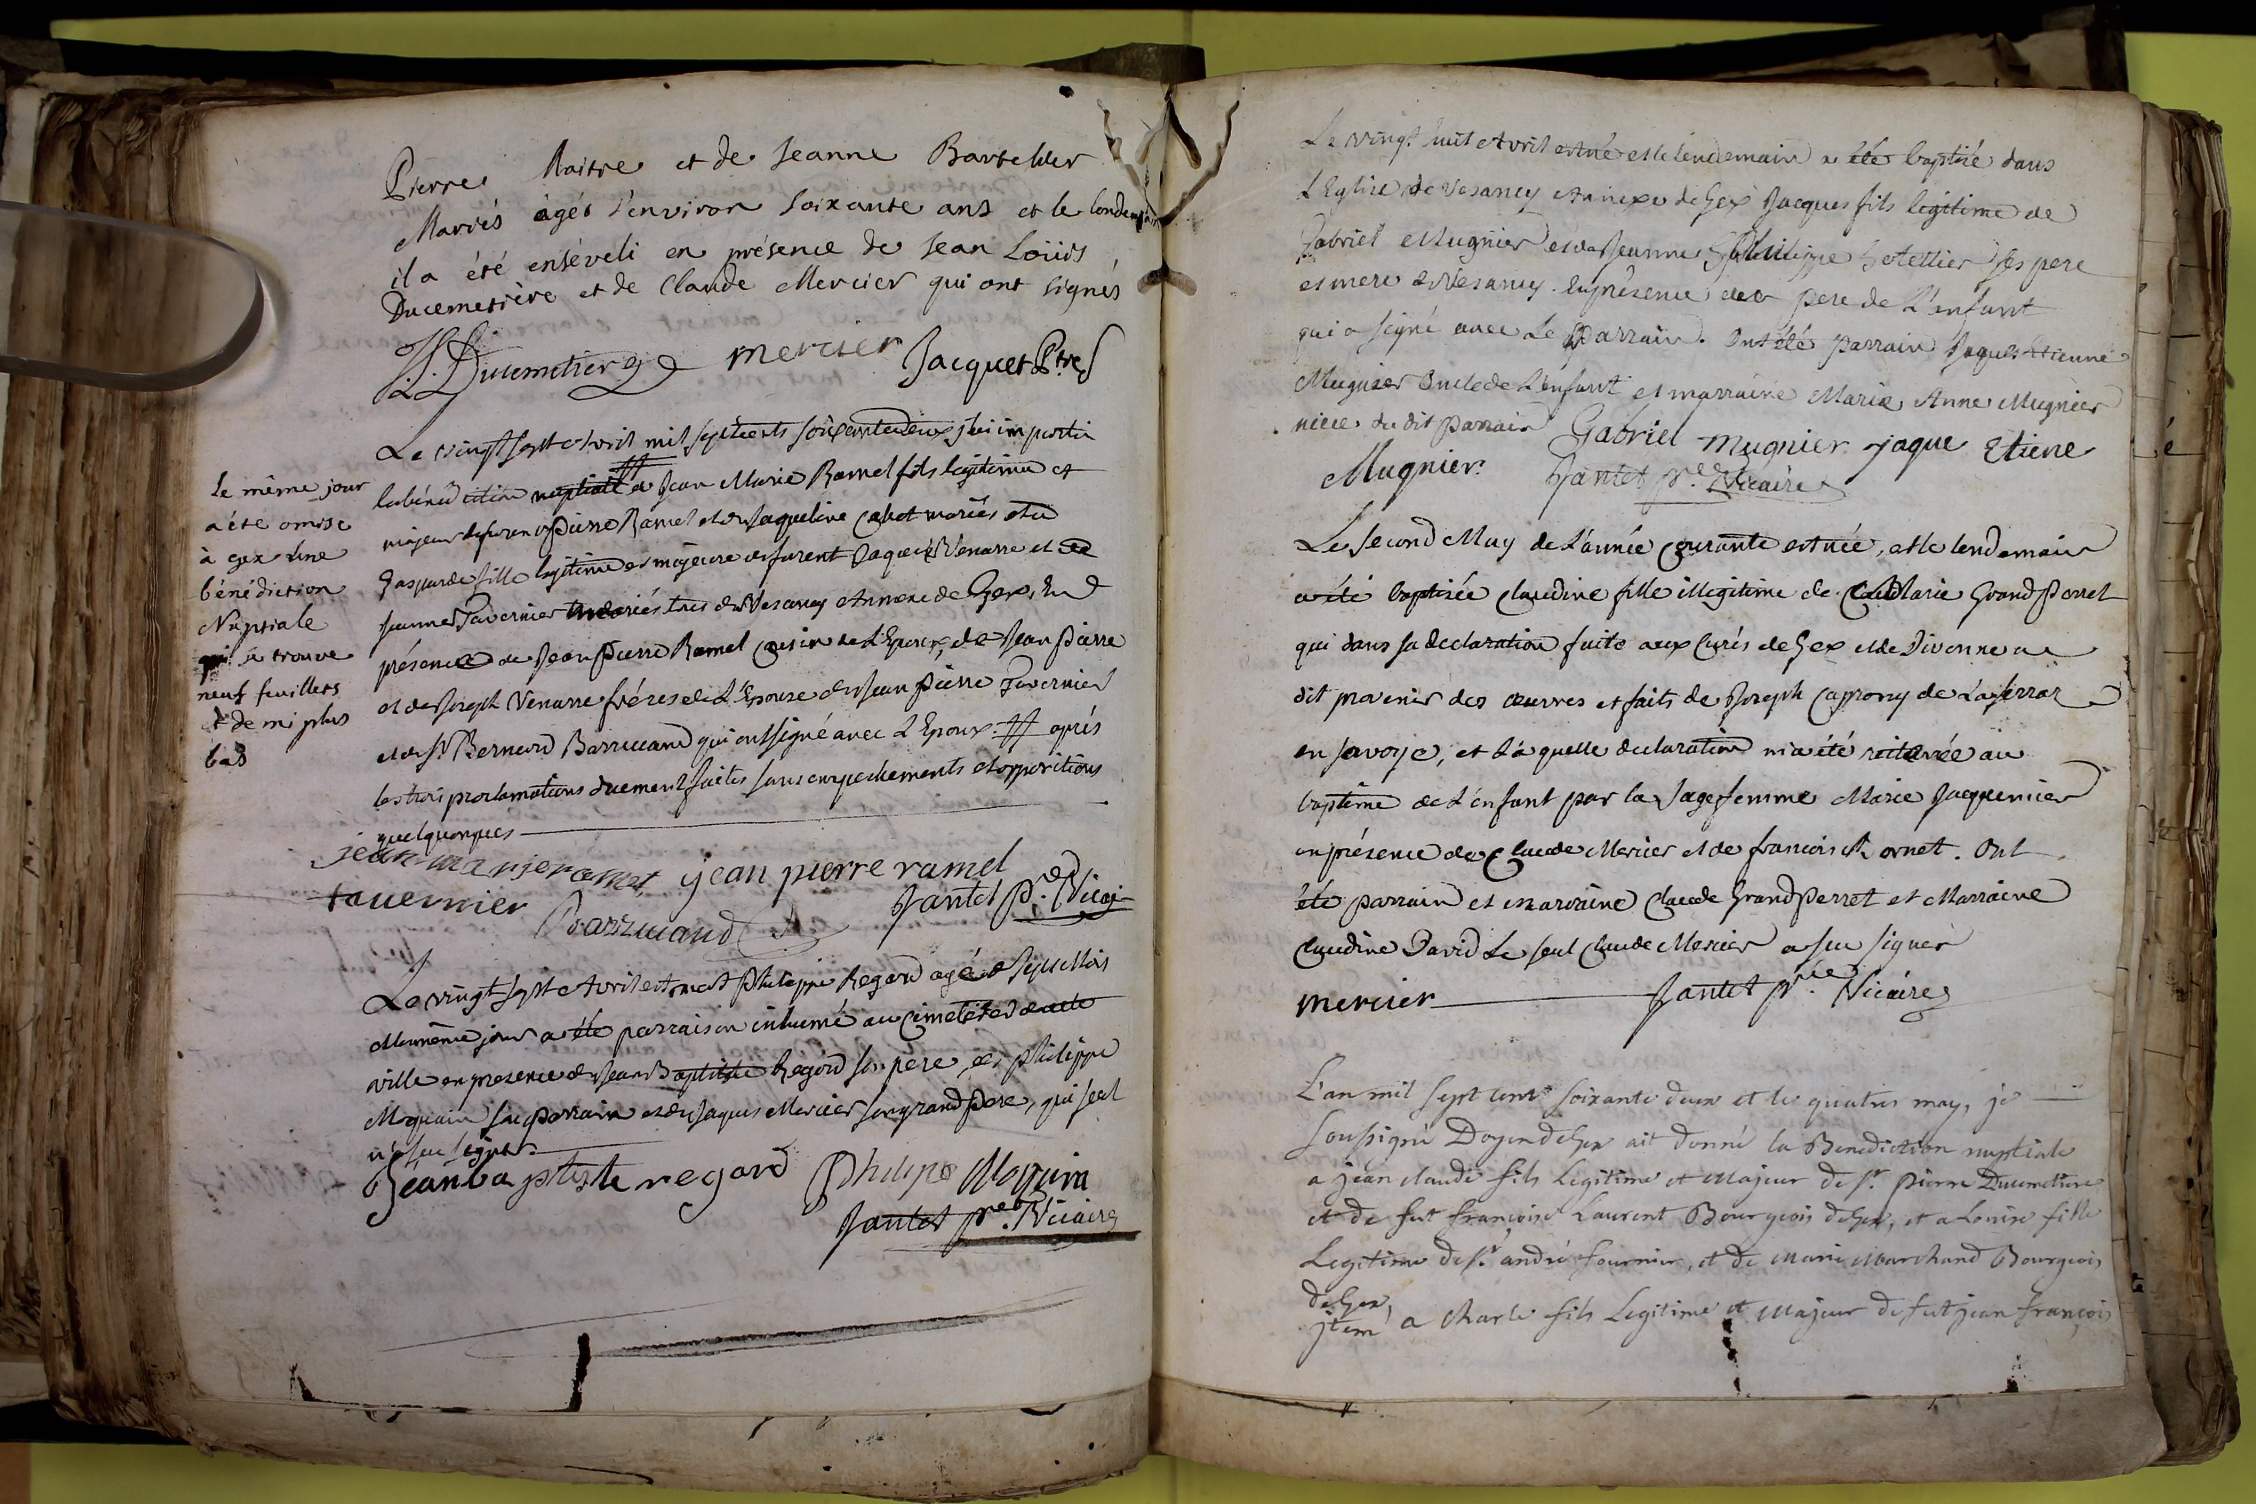 Pierre Maitre et de Jeanne Bartelder
Mariés âgés d'environ soixante ans et le lendemain
il a été enséveli en présence de Jean Loüis
Ducemetière et de Claude Mercier qui ont signés
J. L. Ducimetiere mercier Jacquet Ptre
Le vingt sept Avril mil sept cents soixante deux j'ai imparti
la bénédiction nuptiale # a Jean Marie Ramel fils legitime et
majeur de furent Pierre Ramel et de Jaqueline Cabot mariés et a
Gasparde fille legitime et majeure de furent Jaques Venarre et de
Jeanne Tavernier mariés tous de Vesancy Annexe de Gex, En
présence de Jean Pierre Ramel Cousin de L'Epoux, de Jean Pierre
et de Joseph Venarre fréres de L'Epouse de Jean Pierre Tavernier
et de Sr Bernard Barrucand qui ont signé avec L'Epoux. # aprés
les trois proclamations duement faites sans empechements et oppositions
quelquonques
jean marie ramel jean pierre ramel
tavernier Barrucand Jantet pre. Vicaire
Le même jour
a été omise
à gex une
bénédiction
Nuptiale
qui se trouve
neuf feuillets
et demi plus
bas
Le vingt sept Avril est mort Philippe Regard agé de sept Mois
et le même jour a été par raison inhumé au Cimetiére de cette
ville en presence de Jean Baptiste Regard son pére, de philippe
Moquin son parrain et de Jaques Mercier son grand Pere, qui seul
n'a seu signer
Jean baptiste regard Philipe Moquin
Jantet pre. Vicaire
Le vingt huit Avril est né et le lendemain a été baptisé dans
L'Eglise de Vesancy Annexe de Gex Jacques fils legitime de
Gabriel Mugnier et de Jeanne Philippe Gotettier ses pere
et mere de Vesancy. En présence du pere de L'enfant
qui a signé avec Le Parrain. Ont été parrain Jaques Etienne
Mugnier Oncle de L'enfant et marraine Marie Anne Mugnier
niéce du dit parrain Gabriel mugnier. jaque Etiene
Mugnier. Jantet pre. Vicaire
Le second May de L'année courante est née, et le lendemain
a été baptisée Claudine fille illegitime de Marie Grand Perret
qui dans sa declaration faite aux Curés de Gex et de Divonne a
dit provenir des œuvres et faits de Joseph Cappony de
en savoye, et Laquelle declaration m'a été reiterée au
baptême de L'enfant par la sagefemme Marie Jacquenier
en présence de Claude Mercier et de francois Rornet. Ont
été parrain et marraine Claude Grand Perret et Marraine
Claudine David Le seul Claude Mercier a seu signer
mercier Jantet pre. Vicaire
L'an mil sept cent soixante deux et le quatre may, je
soussigné Doyen de Gex ait donné la Benediction nuptiale
a jean claude fils Legitime et Majeur de sr. pierre Ducimetiere
et de fut françoise Laurent Bourgeois de Gex, et a Louise fille
Legitime de sr. andré fournier, et de Marie Marchand Bourgeois
de Gex,
jtem a Charle fils Legitime et Majeur de fut jean françois